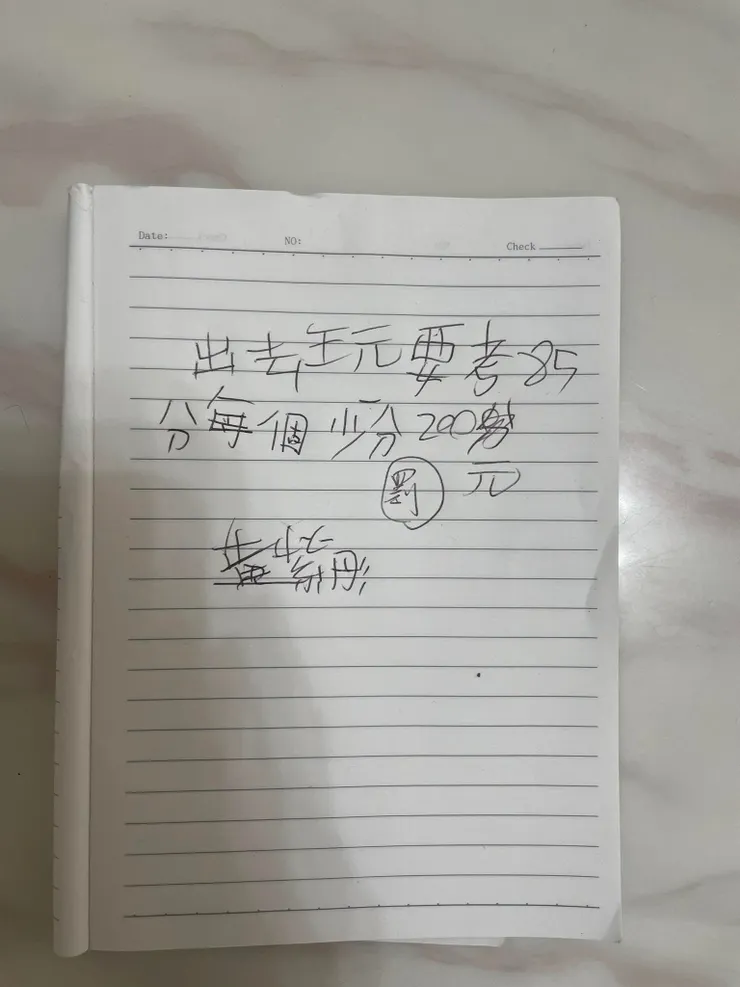 Date:
NO:
Check
出去玩要考85
分每個少一分200
罰 元